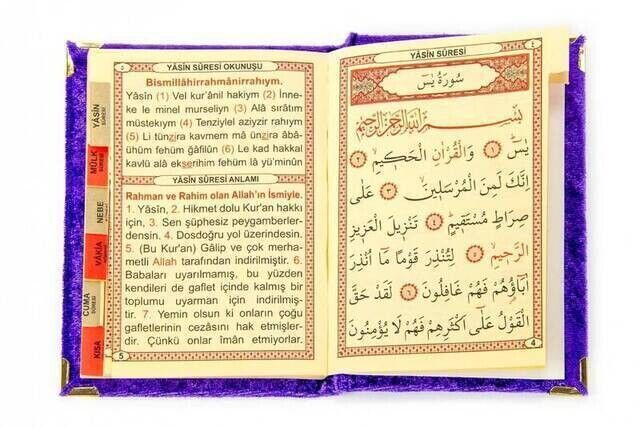 ٥
YÂSİN SÛRESİ OKUNUŞU
Bismillâhirrahmânirrahıym.
Yâsîn (1) Vel kur'ânil hakiym (2) İnne-
ke le minel murseliyn (3) Alâ sırâtım
müstekıym (4) Tenziylel aziyzir rahıym
(5) Li tünzira kavmem mâ ünzira âbâ-
ühüm fehüm ğâfilûn (6) Le kad hakkal
kavlü alâ ekserihim fehüm lâ yü'minûn
YÂSİN SÛRESİ ANLAMI
Rahman ve Rahim olan Allah'ın İsmiyle.
1. Yâsîn, 2. Hikmet dolu Kur'an hakkı
için, 3. Sen şüphesiz peygamberler-
densin. 4. Dosdoğru yol üzerindesin.
5. (Bu Kur'an) Gâlip ve çok merha-
metli Allah tarafından indirilmiştir. 6.
Babaları uyarılmamış, bu yüzden
kendileri de gaflet içinde kalmış bir
toplumu uyarman için indirilmiş-
tir. 7. Yemin olsun ki onların çoğu
gafletlerinin cezasını hak etmişler-
dir. Çünkü onlar îmân etmiyorlar.
5
YÂSİN
SÛRESİ
MÜLK
SÛRESİ
NEBE
VÂKIA
CUMA
SÛRESİ
KISA
YÂSİN SÛRESİ
٤
سُورَةُ يٰسٓ
بِسْمِ اللّٰهِ الرَّحْمٰنِ الرَّحِيمِ
يٰسٓ ﴿١﴾ وَالْقُرْاٰنِ الْحَكِيمِۙ ﴿٢﴾
اِنَّكَ لَمِنَ الْمُرْسَلِينَۙ ﴿٣﴾ عَلٰى
صِرَاطٍ مُسْتَقِيمٍۜ ﴿٤﴾ تَنْزِيلَ الْعَزِيزِ
الرَّحِيمِۙ ﴿٥﴾ لِتُنْذِرَ قَوْمًا مَٓا اُنْذِرَ
اٰبَٓاؤُ۬هُمْ فَهُمْ غَافِلُونَ ﴿٦﴾ لَقَدْ حَقَّ
الْقَوْلُ عَلٰٓى اَكْثَرِهِمْ فَهُمْ لَا يُؤْمِنُونَ
4